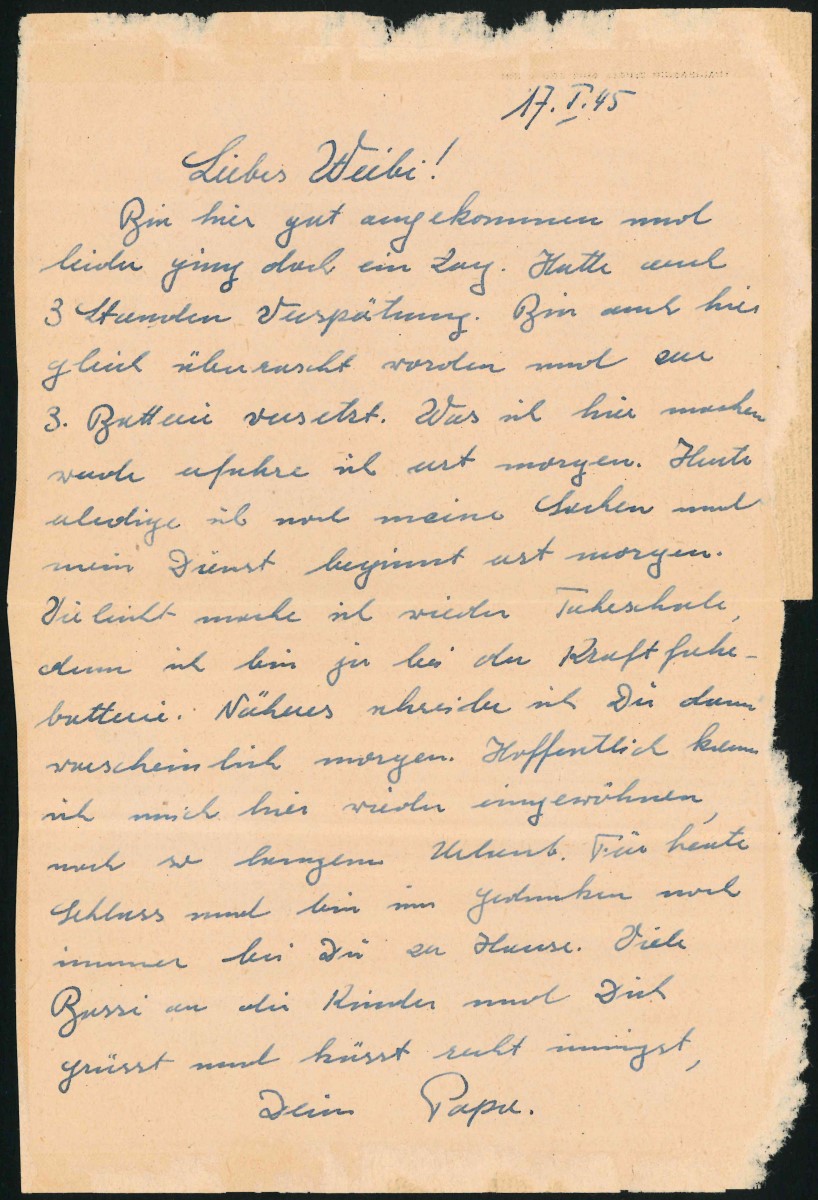 17.I.45
Liebes Weibi!
Bin hier gut angekommen und
leider ging doch ein Zug. Hatte auch
3 Stunden Verspätung. Bin auch hier
gleich überrascht worden und zur
3. Batterie versetzt. Was ich hier machen
werde erfahre ich erst morgen. Heute
erledige ich noch meine Sachen und
mein Dienst beginnt erst morgen.
Vieleicht mache ich wieder Fahrschule,
denn ich bin ja bei der Kraftfahr-
batterie. Näheres schreibe ich Dir dann
warscheinlich morgen. Hoffentlich kann
ich mich hier wieder eingewöhnen,
nach so langem Urlaub. Für heute
Schluss und bin in gedanken noch
immer bei Dir zu Hause. Viele
Bussi an die Kinder und Dich
grüsst und küsst recht innigst,
Dein Papa.